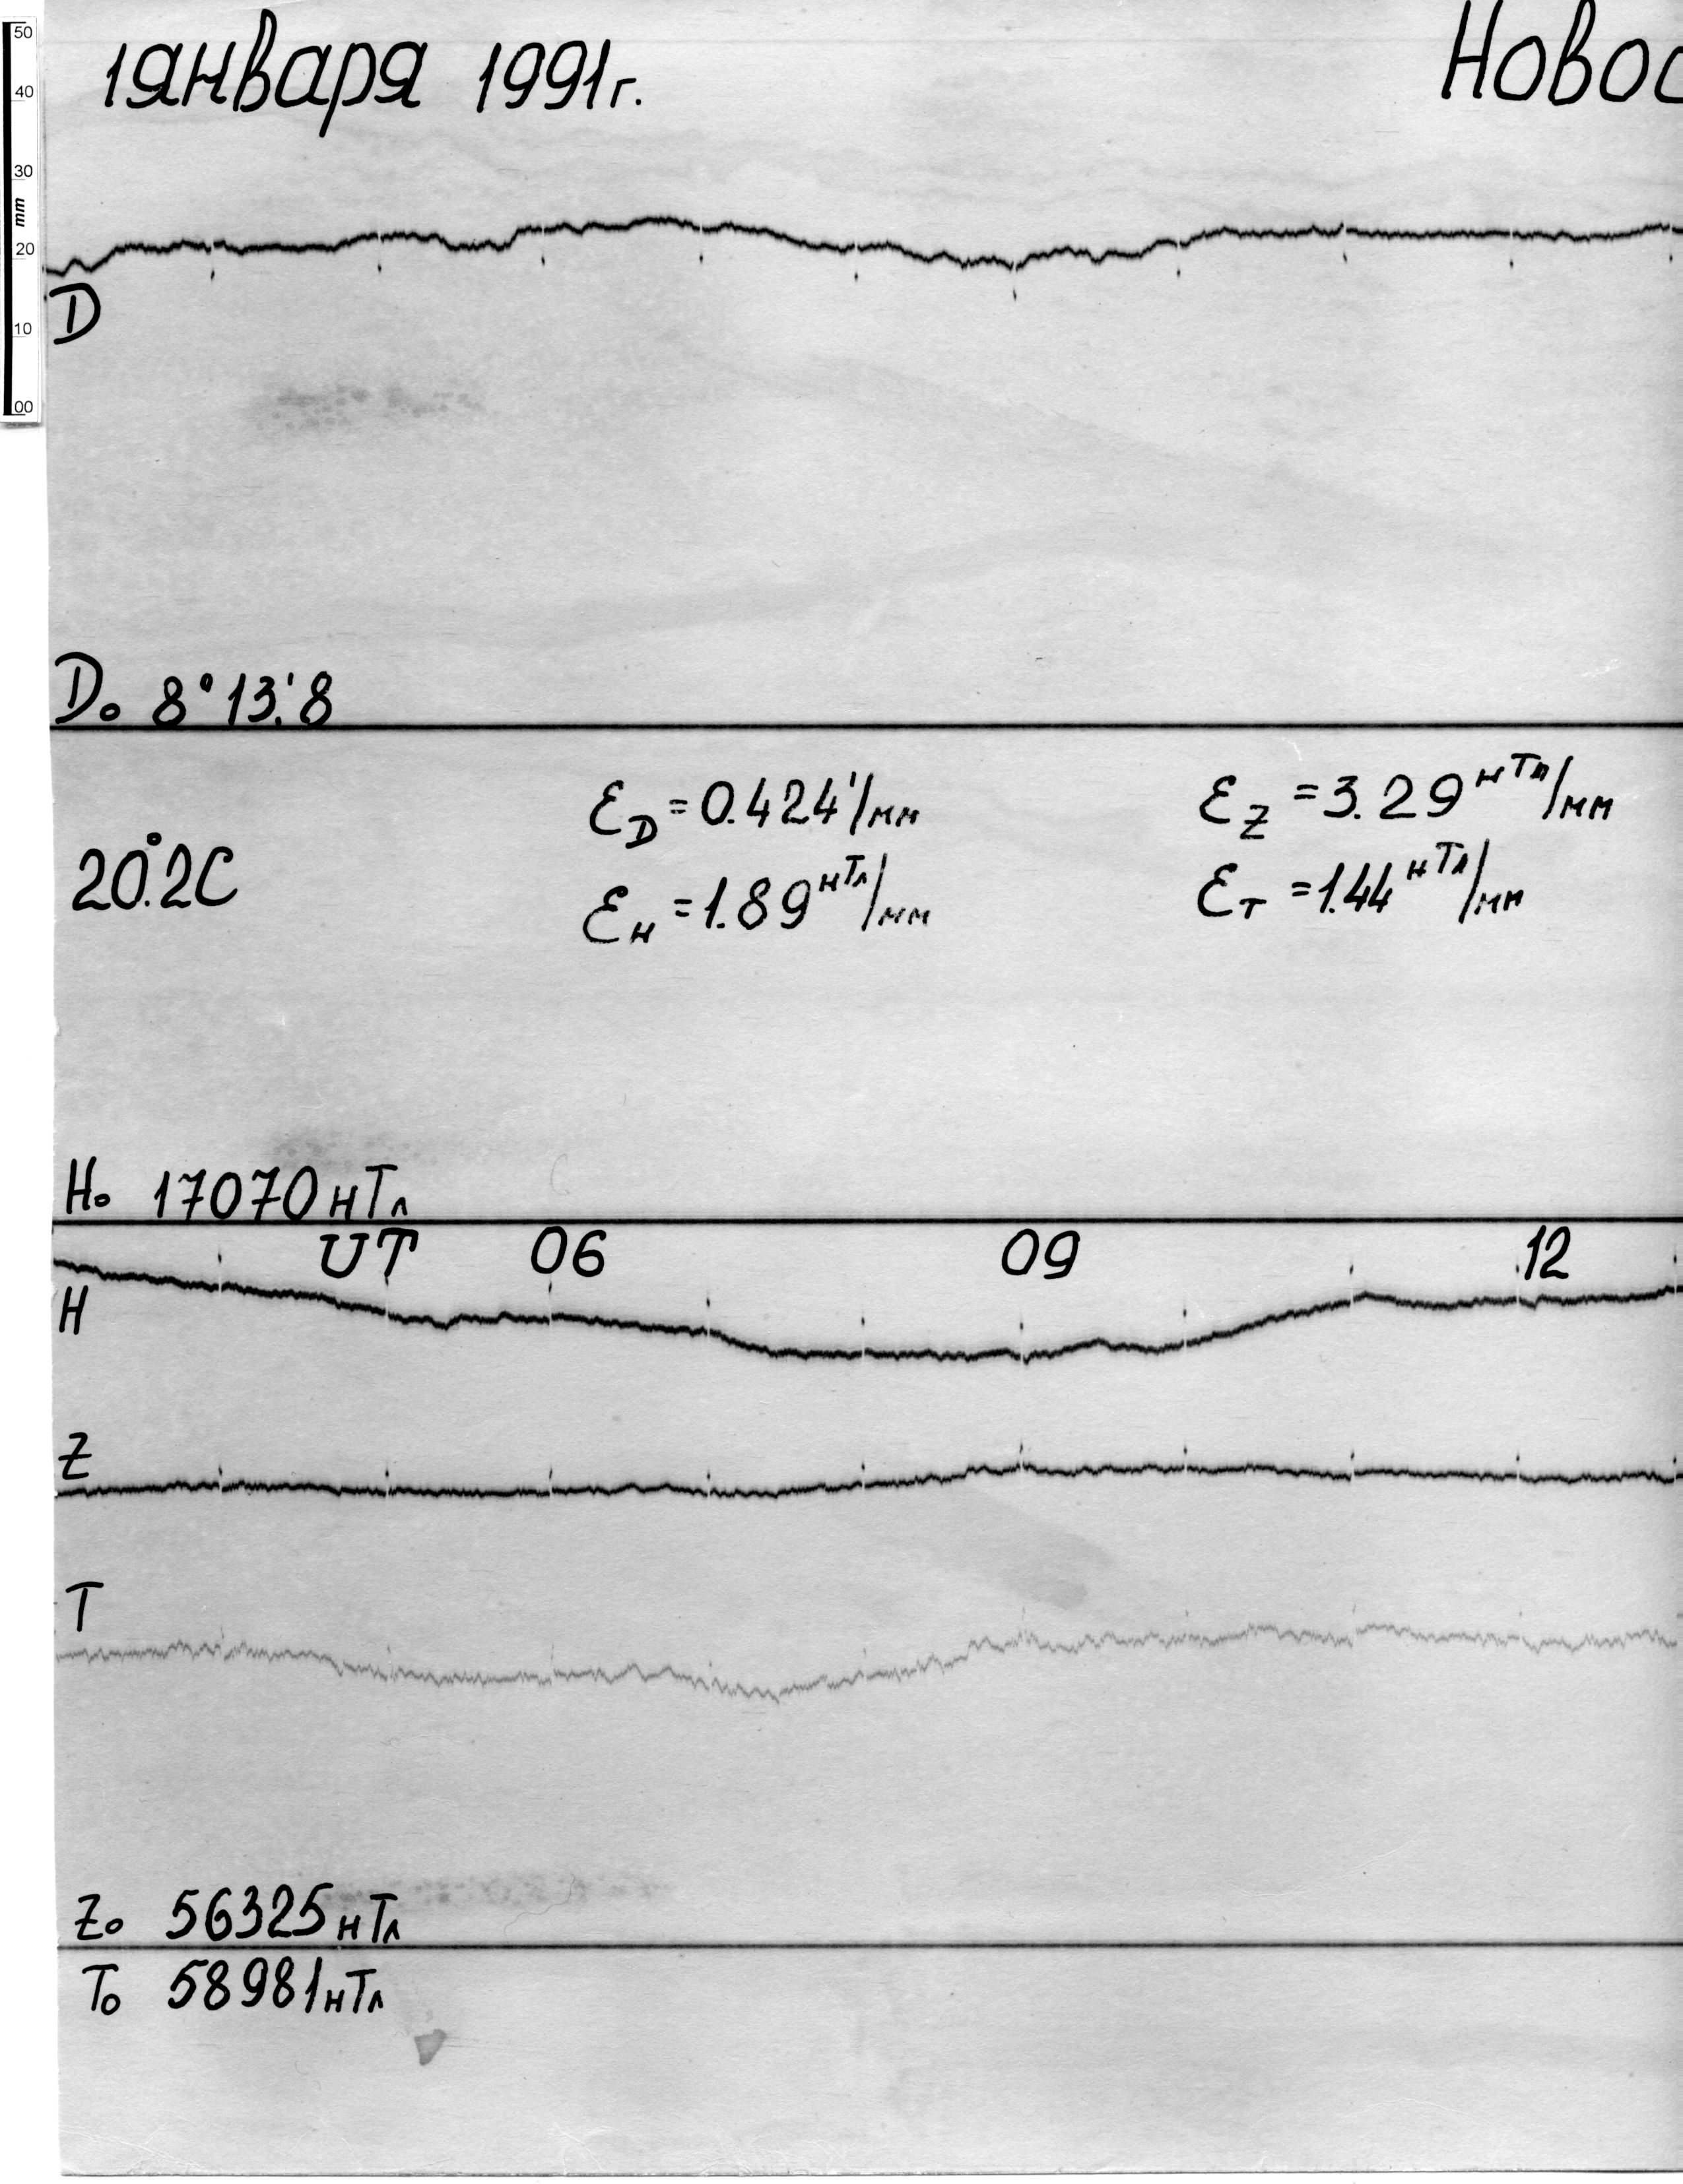 50
40
30
mm
20
10
00
1января 1991г. Новос
D
D₀ 8°13.'8
ε_D = 0.424'/мм ε_Z = 3.29 нТл/мм
20.°2С
ε_H = 1.89 нТл/мм ε_T = 1.44 нТл/мм
H₀ 17070нТл
UT 06 09 12
H
Z
T
Z₀ 56325нТл
T₀ 58981нТл